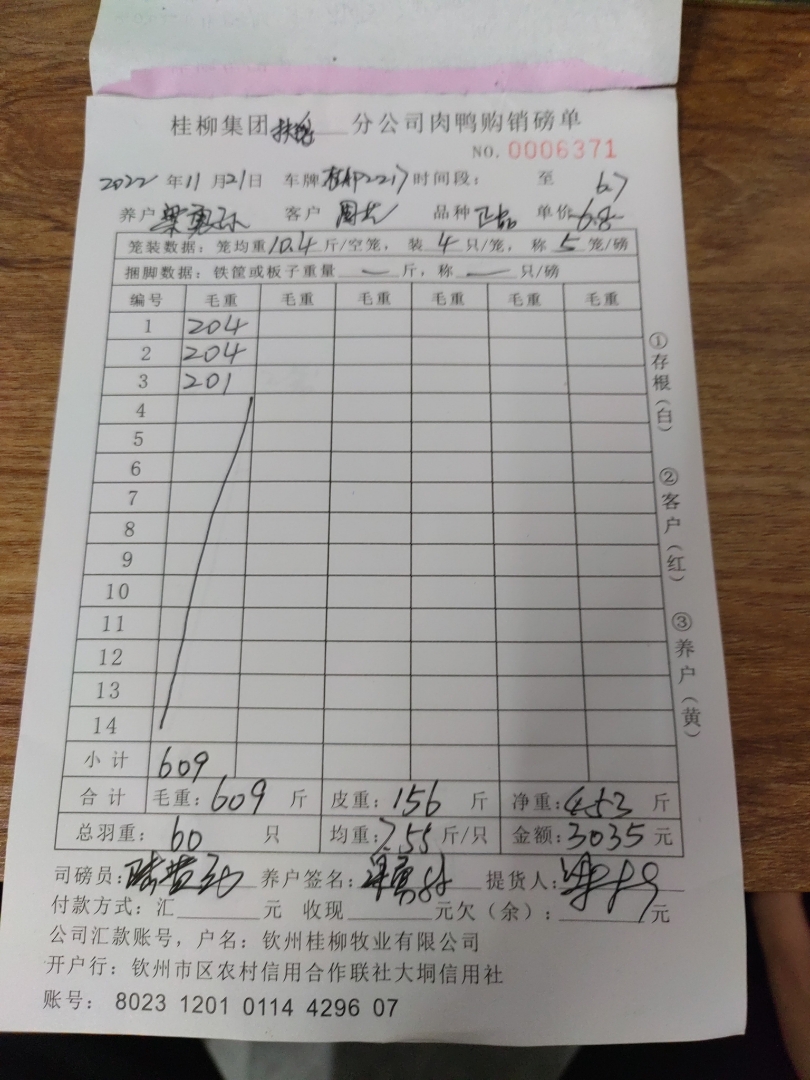 桂柳集团 分公司肉鸭购销磅单
NO. 0006371
2022 年 11 月 21 日 车牌 桂柳2217 时间段： 至
6.7
养户 梁勇 客户 周 品种 正品 单价 6.8
笼装数据：笼均重 10.4 斤/空笼，装 4 只/笼，称 5 笼/磅
捆脚数据：铁筐或板子重量 — 斤，称 — 只/磅
编号 毛重 毛重 毛重 毛重 毛重 毛重
1 204
2 204
3 201
4
5
6
7
8
9
10
11
12
13
14
小计 609
合计 毛重：609 斤 皮重：156 斤 净重：453 斤
总羽重：60 只 均重：7.55 斤/只 金额：3035 元
司磅员： 养户签名： 提货人：
付款方式：汇 元 收现 元欠（余）： 元
公司汇款账号，户名：钦州桂柳牧业有限公司
开户行：钦州市区农村信用合作联社大垌信用社
账号： 8023 1201 0114 4296 07
①存根（白）
②客户（红）
③养户（黄）